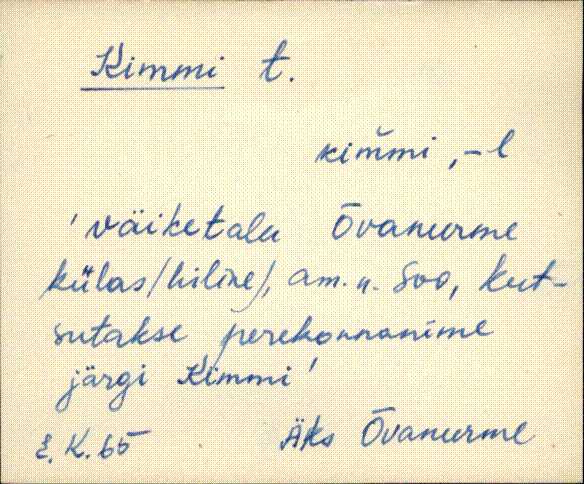 Kimmi t.
kim̆mi, -l
'väiketalu Õvanurme
külas /hiline/, am. n. Soo, kut-
sutakse perekonnanime
järgi Kimmi'
E.K. 65 Äks Õvanurme